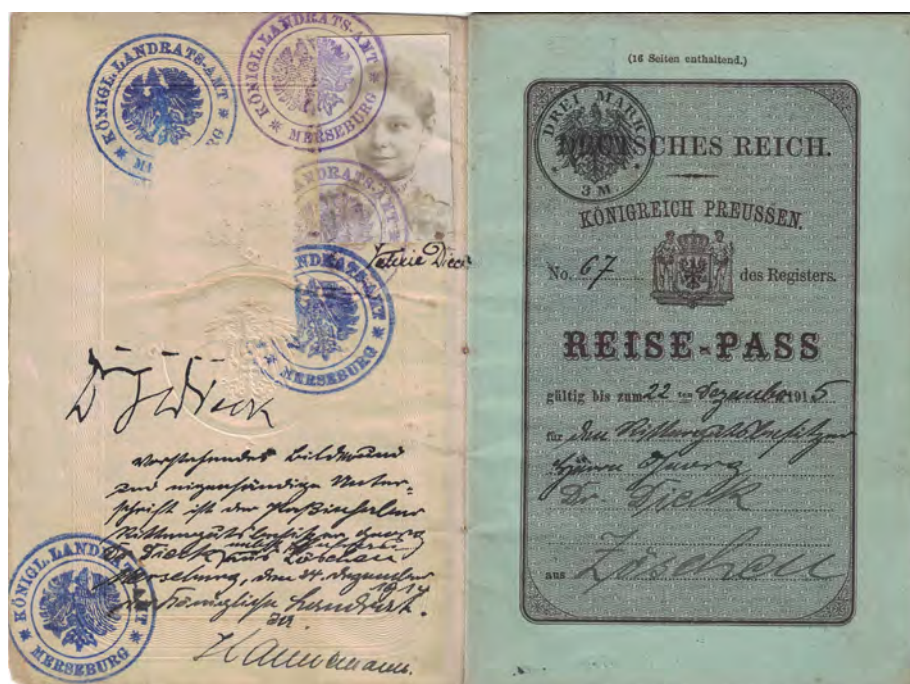 KÖNIGL. LANDRATS-AMT
MERSEBURG
KÖNIGL. LANDRATS-AMT
MERSEBURG
LANDRATS-AMT
Valerie Dieck
NDRATS-AMT
MERSEBURG
Dr. G Dieck
Vorstehendes Bild
und eigenhändige Unter-
schrift ist der Paßinhaber
Rittergutsbesitzer
Dr. Dieck Zöschen
Merseburg, den Dezember
1914
Der Königliche Landrat.
KÖNIGL. LANDRATS-AMT
MERSEBURG
(16 Seiten enthaltend.)
DREI MARK
3 M.
DEUTSCHES REICH.
KÖNIGREICH PREUSSEN.
No. 67 des Registers.
REISE-PASS
gültig bis zum 22 ten Dezember 1915
für den Rittergutsbesitzer
Herrn Georg
Dr. Dieck
aus Zöschen